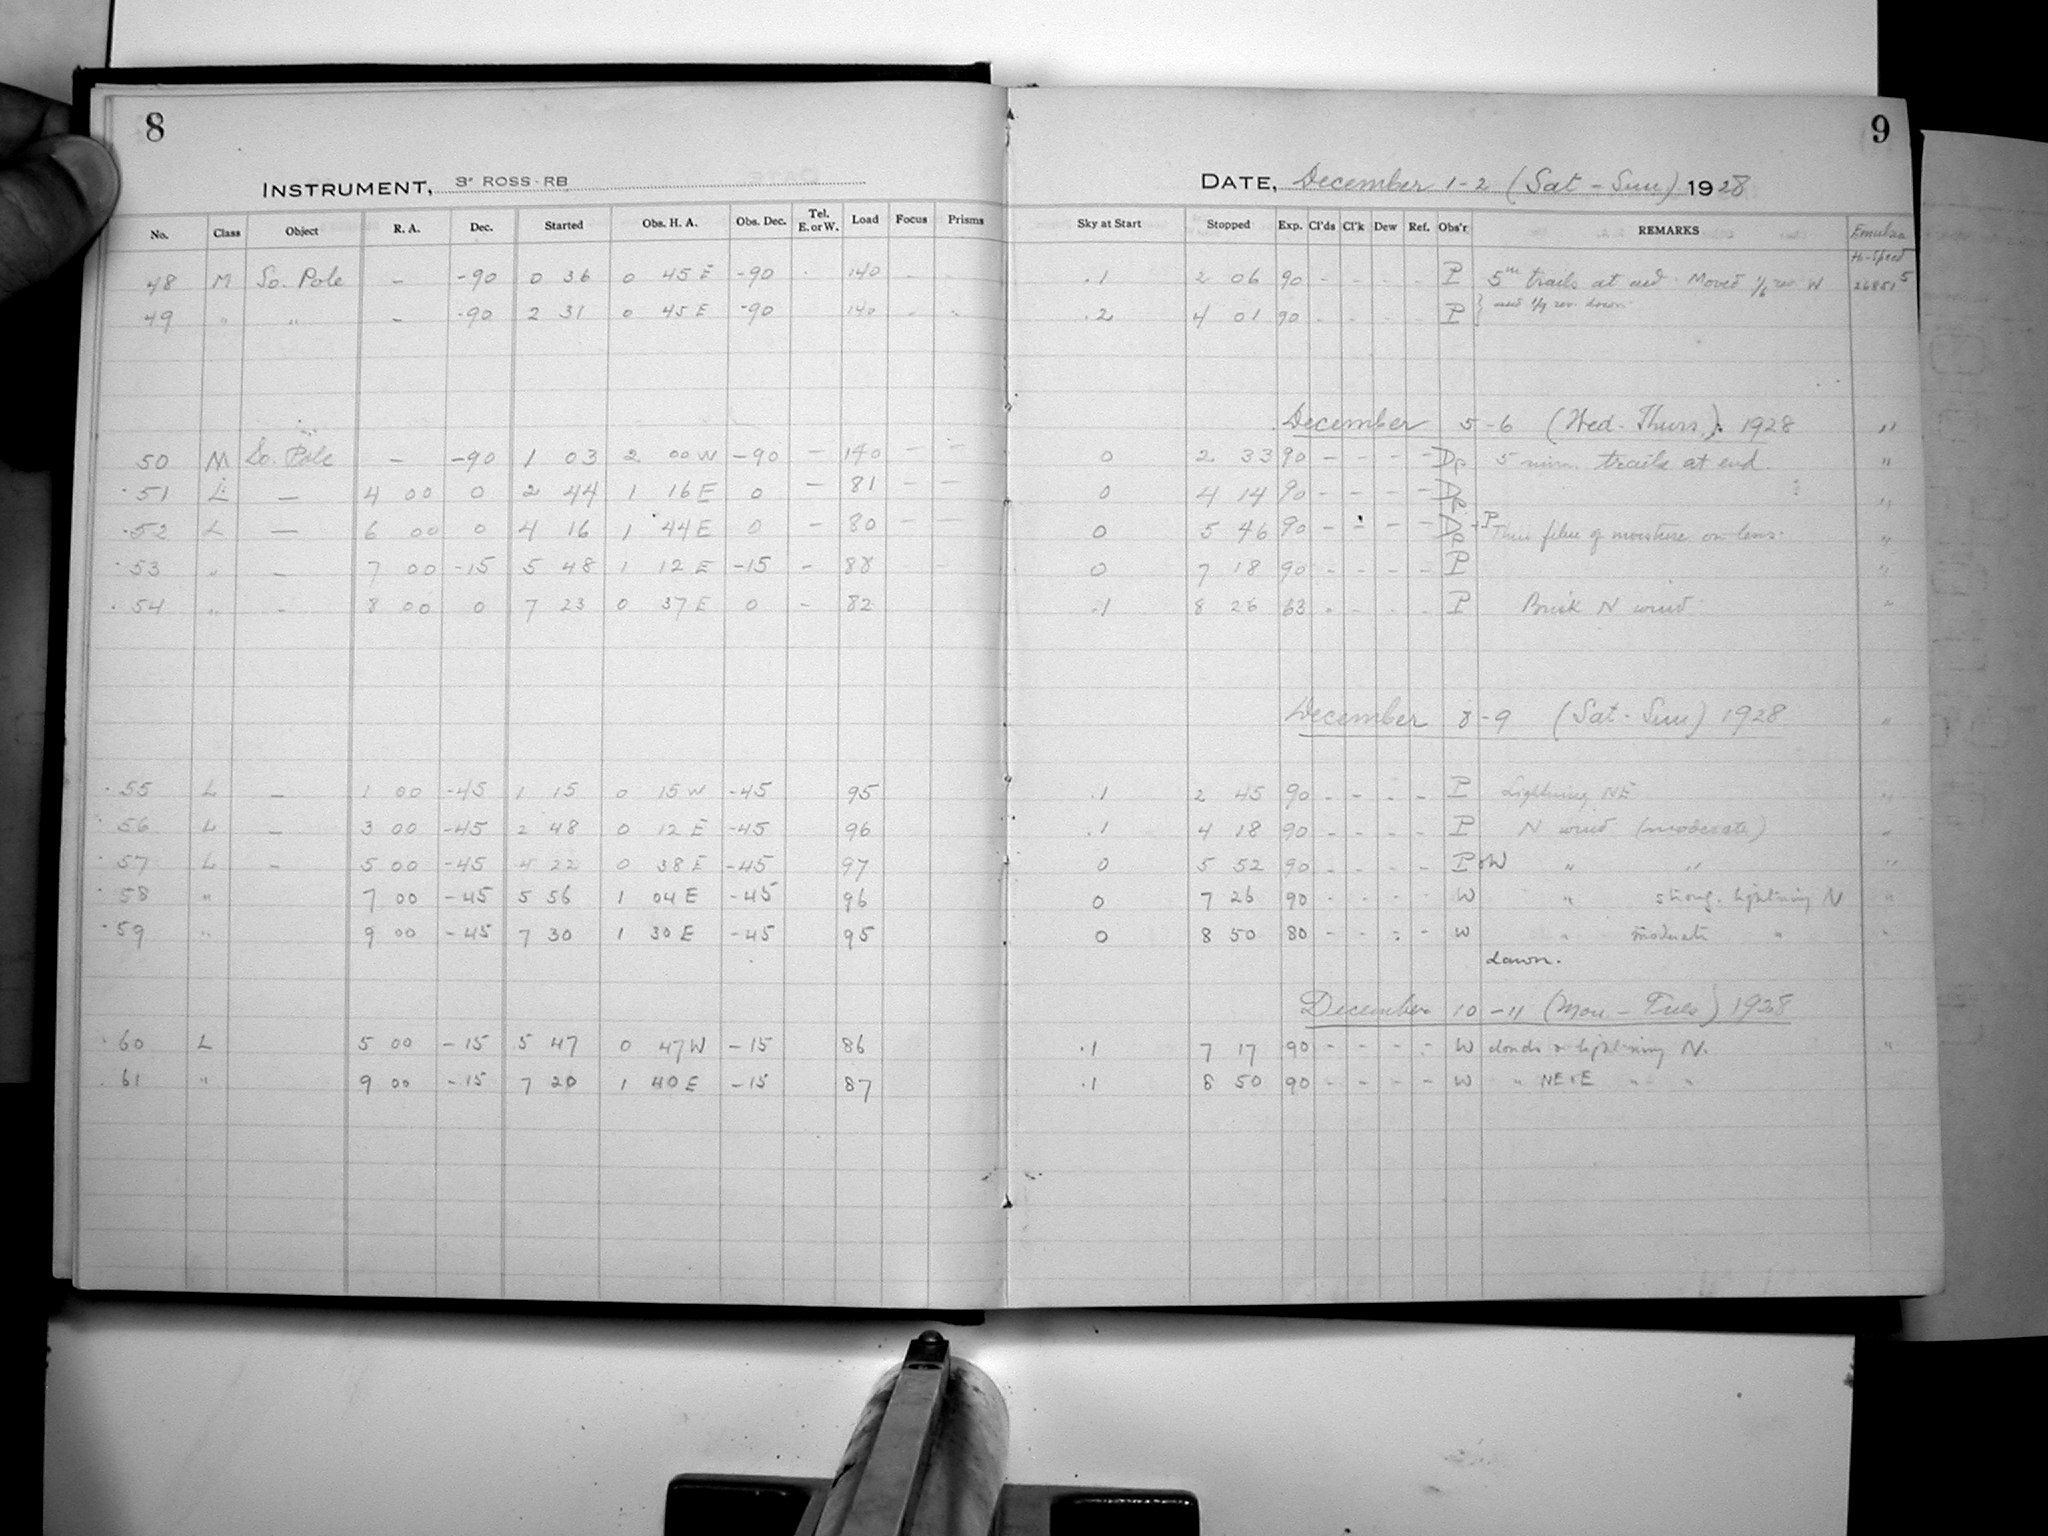 8
9
INSTRUMENT, 3" ROSS-RB
DATE, December 1-2 (Sat - Sun) 1928
No. Class Object R. A. Dec. Started Obs. H. A. Obs. Dec. Tel. E. or W. Load Focus Prisms Sky at Start Stopped Exp. Cl'ds Cl'k Dew Ref. Obs'r REMARKS Emulsion
Hi-Speed
48 M So. Pole - -90 0 36 0 45 E -90 140 - - .1 2 06 90 - - - - P 5m trails at end. Moved 1/6 rev W 26851
49 " " - -90 2 31 0 45 E -90 140 - - .2 4 01 90 - - - - P and rev. down
December 5-6 (Wed-Thurs.) 1928 "
50 M So. Pole - -90 1 03 2 00 W -90 - 140 - - 0 2 33 90 - - - - Dp 5 min. trails at end. "
51 L - 4 00 0 2 44 1 16 E 0 - 81 - - 0 4 14 90 - - - - Dp "
52 L - 6 00 0 4 16 1 44 E 0 - 80 - - 0 5 46 90 - - - - Dp+P Thin film of moisture on lens. "
53 " - 7 00 -15 5 48 1 12 E -15 - 88 - 0 7 18 90 - - - - P "
54 " - 8 00 0 7 23 0 37 E 0 - 82 .1 8 26 63 - - - - P Brisk N wind. "
December 8-9 (Sat-Sun) 1928 "
55 L - 1 00 -45 1 15 0 15 W -45 95 .1 2 45 90 - - - - P Lightning NE "
56 L - 3 00 -45 2 48 0 12 E -45 96 .1 4 18 90 - - - - P N wind (moderate) "
57 L - 5 00 -45 4 22 0 38 E -45 97 0 5 52 90 - - - - P+W " " "
58 " 7 00 -45 5 56 1 04 E -45 96 0 7 26 90 - - - - W " strong. lightning N "
59 " 9 00 -45 7 30 1 30 E -45 95 0 8 50 80 - - - - W " moderate " "
dawn.
December 10-11 (Mon-Tues) 1928
60 L 5 00 -15 5 47 0 47 W -15 86 .1 7 17 90 - - - - W clouds + lightning N. "
61 " 9 00 -15 7 20 1 40 E -15 87 .1 8 50 90 - - - - W " NE+E " "